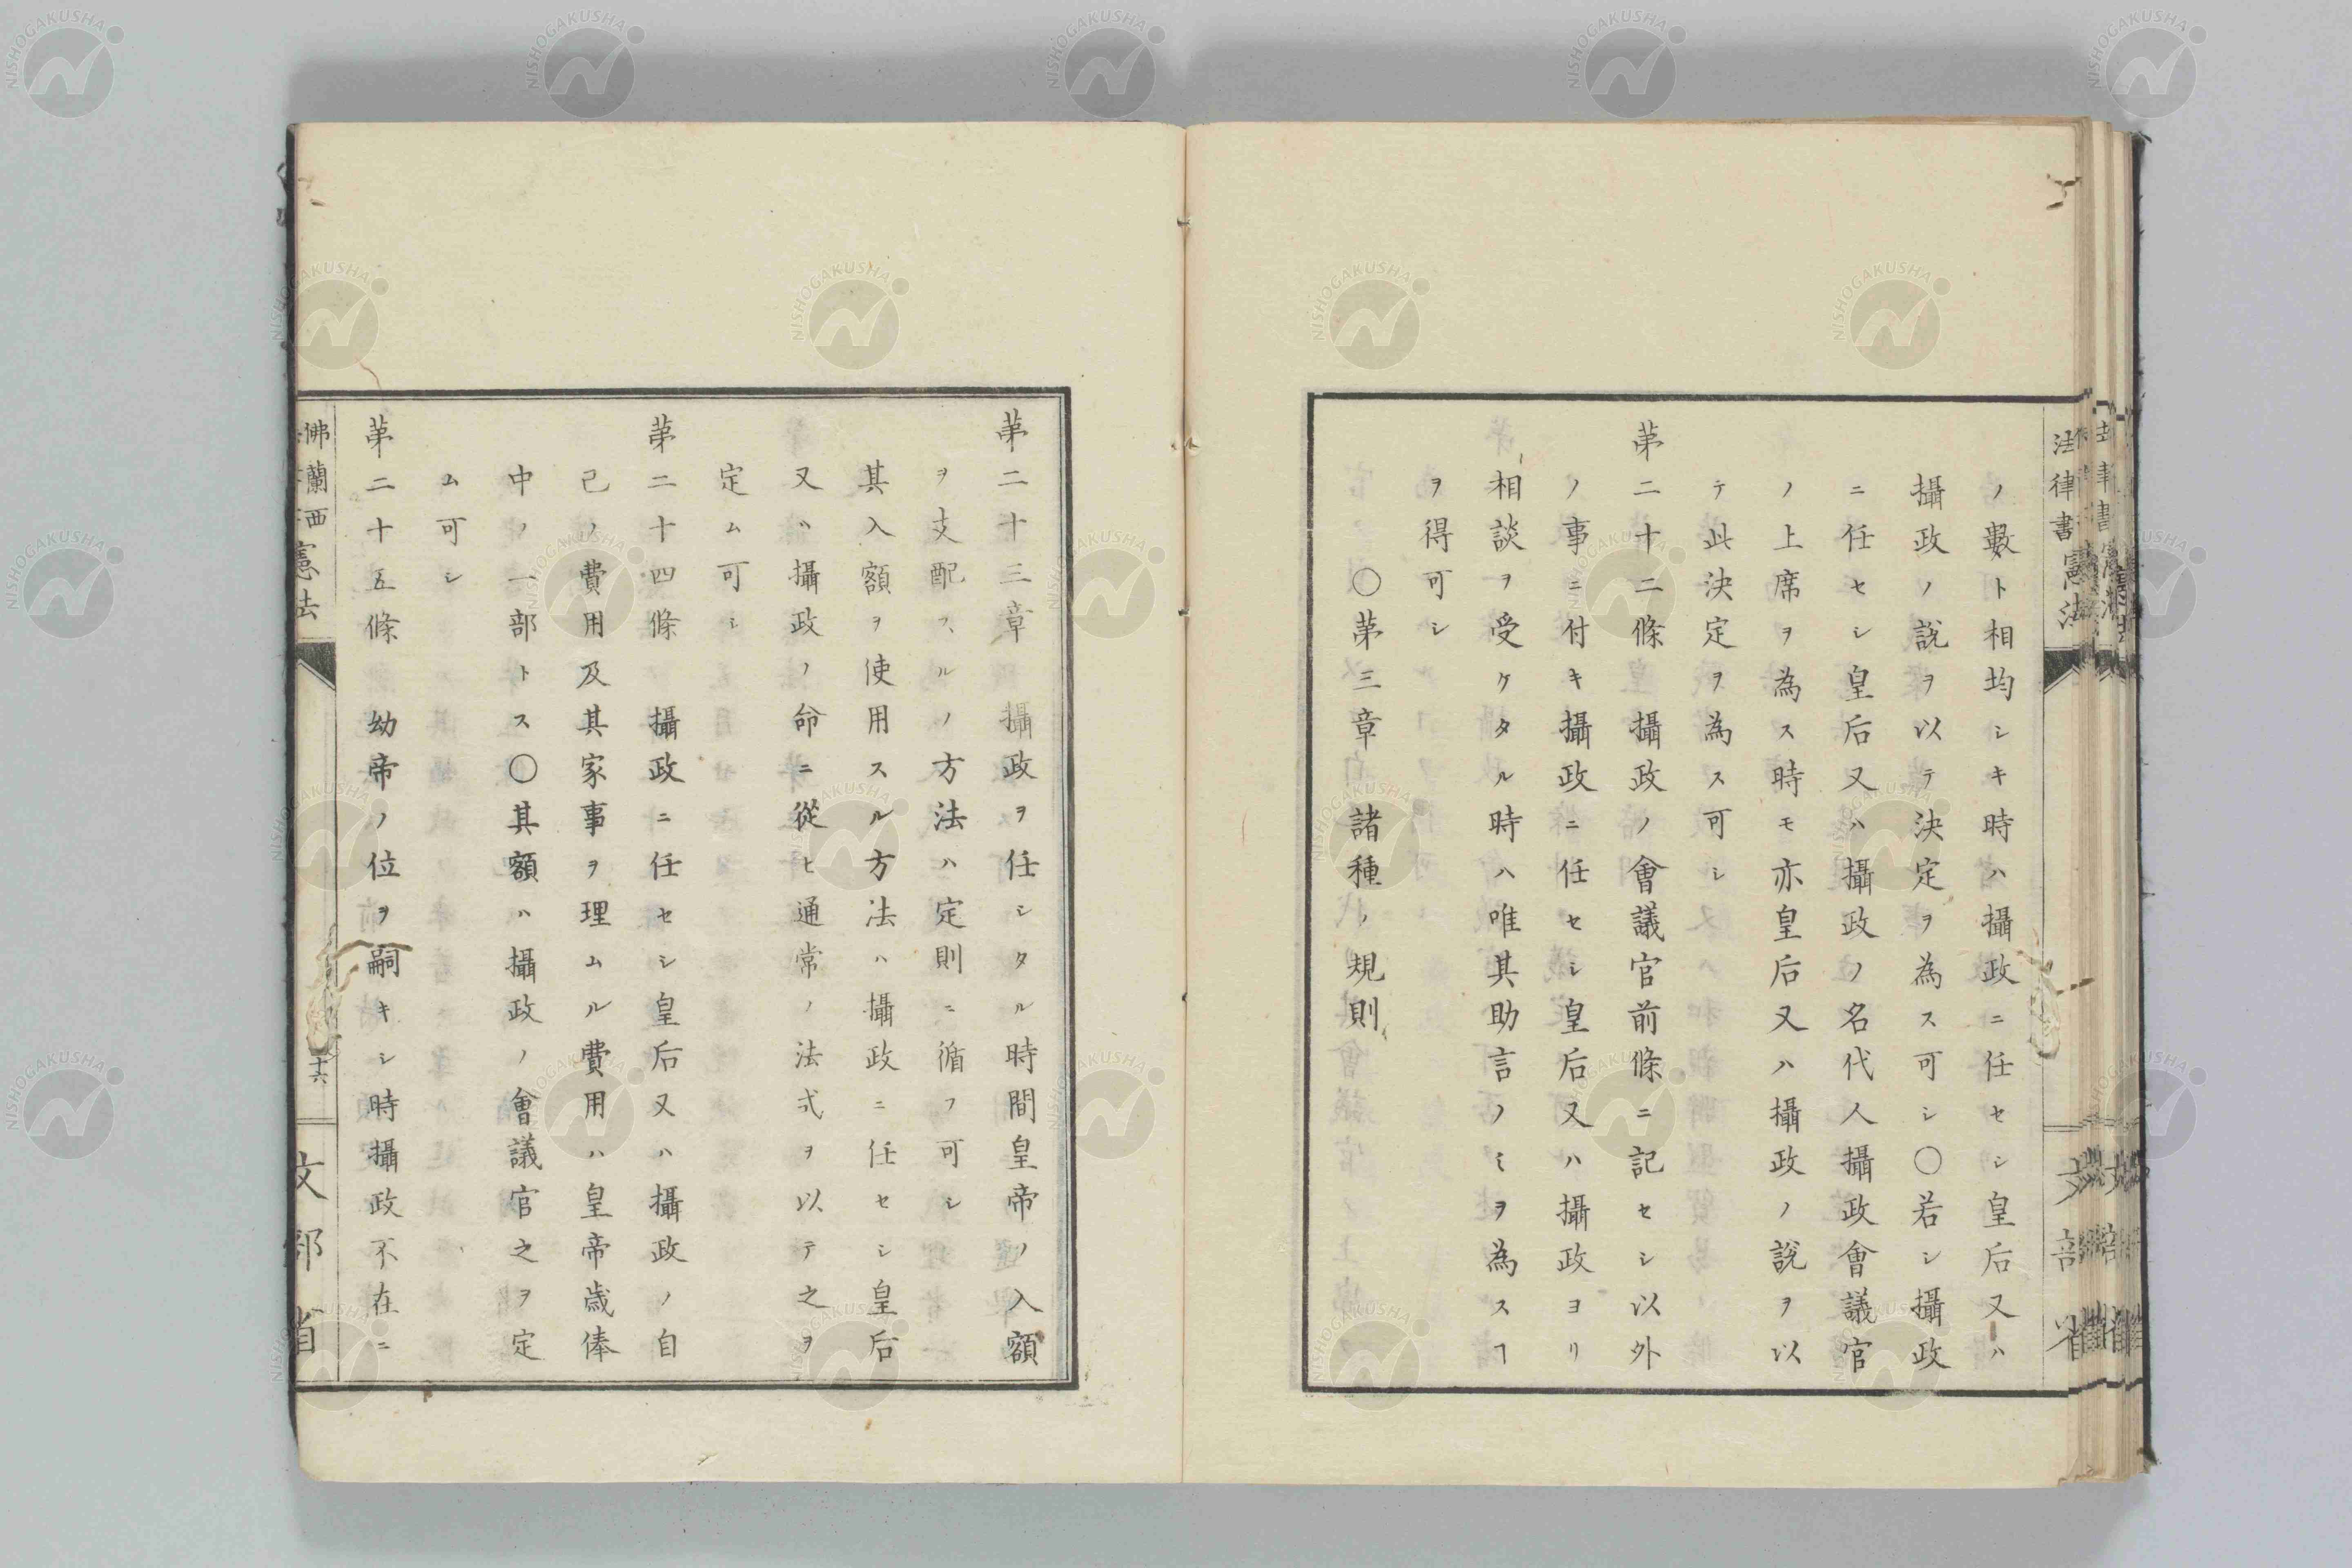 ノ數ト相均シキ時ハ攝政ニ任セシ皇后又ハ
攝政ノ説ヲ以テ決定ヲ為ス可シ〇若シ攝政
ニ任セシ皇后又ハ攝政ノ名代人攝政會議官
ノ上席ヲ為ス時モ亦皇后又ハ攝政ノ説ヲ以
テ此決定ヲ為ス可シ
苐二十二條 攝政ノ會議官前條ニ記セシ以外
ノ事ニ付キ攝政ニ任セシ皇后又ハ攝政ヨリ
相談ヲ受ケタル時ハ唯其助言ノミヲ為スヿ
ヲ得可シ
〇苐三章 諸種ノ規則
苐二十三章 攝政ヲ任シタル時間皇帝ノ入額
ヲ支配スルノ方法ハ定則ニ循フ可シ
其入額ヲ使用スル方法ハ攝政ニ任セシ皇后
又ハ攝政ノ命ニ從ヒ通常ノ法式ヲ以テ之ヲ
定ム可シ
苐二十四條 攝政ニ任セシ皇后又ハ攝政ノ自
己ノ費用及其家事ヲ理ムル費用ハ皇帝歳俸
中ノ一部トス〇其額ハ攝政ノ會議官之ヲ定
ム可シ
苐二十五條 幼帝ノ位ヲ嗣キシ時攝政不在ニ
佛蘭西憲法 十六 文部省
法律書憲法
NISHOGAKUSHA